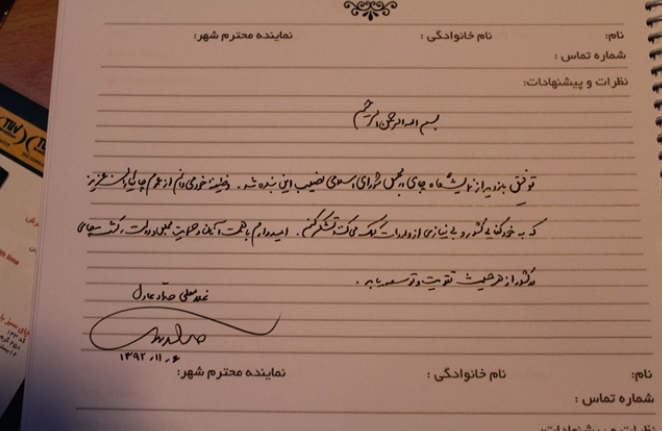 نام: نام خانوادگی : نماینده محترم شهر:
شماره تماس :
نظرات و پیشنهادات:
بسم الله الرحمن الرحیم
توفیق بازدید از نمایشگاه چای در مجلس شورای اسلامی نصیب این بنده شد. وظیفه خود می‌دانم از عموم چایکاران عزیز
که به خودکفایی کشور و بی نیازی از واردات کمک می‌کنند تشکر کنم. امیدوارم با همت آنان و حمایت مجلس و دولت، کشت چای
در کشور از هر حیث تقویت و توسعه یابد.
غلامعلی حداد عادل
۱۳۹۲,۱۱,۶
نام: نام خانوادگی : نماینده محترم شهر:
شماره تماس :
نظرات و پیشنهادات: